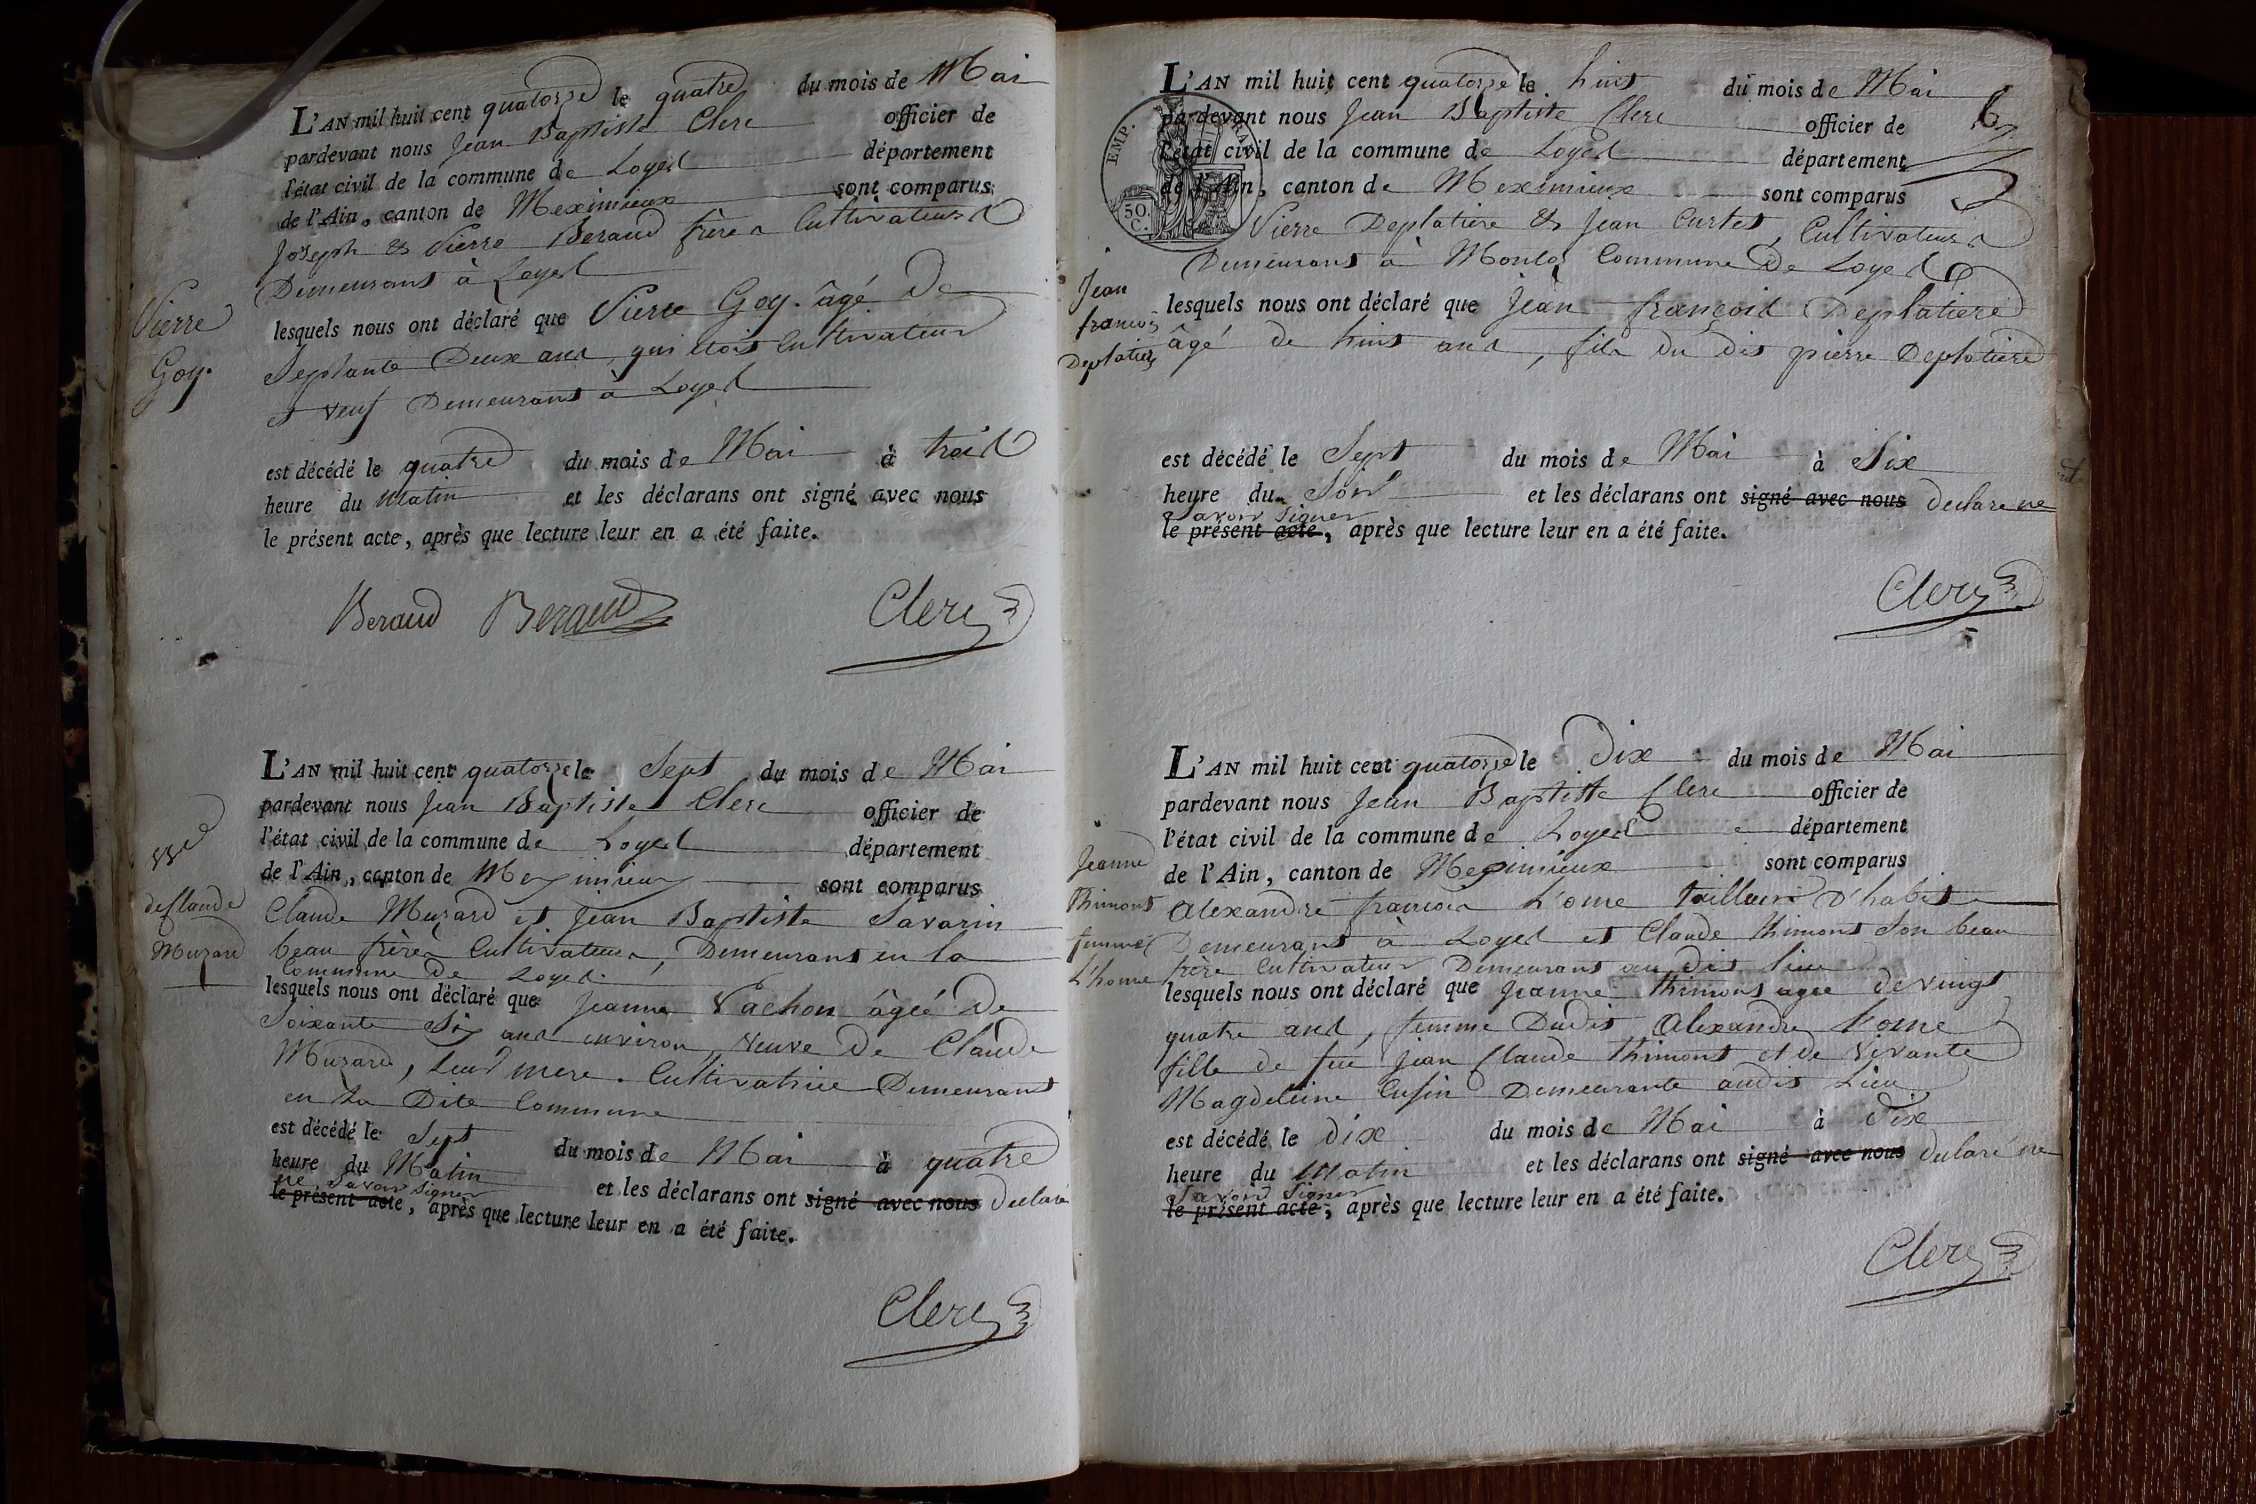 L'AN mil huit cent quatorze le quatre du mois de Mai
pardevant nous Jean Baptiste Clerc officier de
l'état civil de la commune de Loyes département
de l'Ain, canton de Meximieux sont comparus
Joseph et Pierre Beraud frères Cultivateurs
Demeurans à Loyes
Pierre
Goy.
lesquels nous ont déclaré que Pierre Goy. âgé De
Septante Deux ans, qui étoit Cultivateur
et veuf Demeurant à Loyes
est décédé le quatre du mois de Mai à trois
heure du Matin et les déclarans ont signé avec nous
le présent acte, après que lecture leur en a été faite.
Beraud Beraud Clerc
L'AN mil huit cent quatorze le Sept du mois de Mai
pardevant nous Jean Baptiste Clerc officier de
l'état civil de la commune de Loyes département
de l'Ain, canton de Meximieux sont comparus
Vve
de Claude
Murard
Claude Murard et Jean Baptiste Savarin
beau frères Cultivateurs, Demeurans en la
Commune de Loyes.
lesquels nous ont déclaré que Jeanne Vachon âgée De
Soixante Six ans environ, veuve De Claude
Murard, leur mere. Cultivatrice Demeurant
en La Dite Commune
est décédé le Sept du mois de Mai à quatre
heure du Matin et les déclarans ont signé avec nous declaré
ne Savoir Signer
le présent acte, après que lecture leur en a été faite.
Clerc
6
L'AN mil huit cent quatorze le huit du mois de Mai
pardevant nous Jean Baptiste Clerc officier de
l'état civil de la commune de Loyes département
de l'Ain, canton de Meximieux sont comparus
EMP. FRA
50.
C.
Pierre Deplatiere et Jean Curtet, Cultivateurs
Demeurans à Monla Commune De Loyes
Jean
francois
Deplatiere
lesquels nous ont déclaré que Jean françois Deplatiere
âgé de huit ans, fils du dit pierre Deplatiere
est décédé le Sept du mois de Mai à Six
heure du Soir et les déclarans ont signé avec nous declare ne
Savoir Signer
le présent acte, après que lecture leur en a été faite.
Clerc
L'AN mil huit cent quatorze le Dix du mois de Mai
pardevant nous Jean Baptiste Clerc officier de
l'état civil de la commune de Loyes département
de l'Ain, canton de Meximieux sont comparus
Jeanne
Thimont
femme
L'home
Alexandre francois L'ome tailleur D'habit
Demeurant à Loyes et Claude Thimont Son beau
frère Cultivateur Demeurant au dit lieu
lesquels nous ont déclaré que Jeanne Thimont agée de vingt
quatre ans, femme Dudit Alexandre home
fille de feu Jean Claude Thimont et de Vivante
Magdeleine Cusin Demeurante audit Lieu
est décédé le dix du mois de Mai à Dix
heure du Matin et les déclarans ont signé avec nous declaré ne
Savoir Signer
le présent acte, après que lecture leur en a été faite.
Clerc